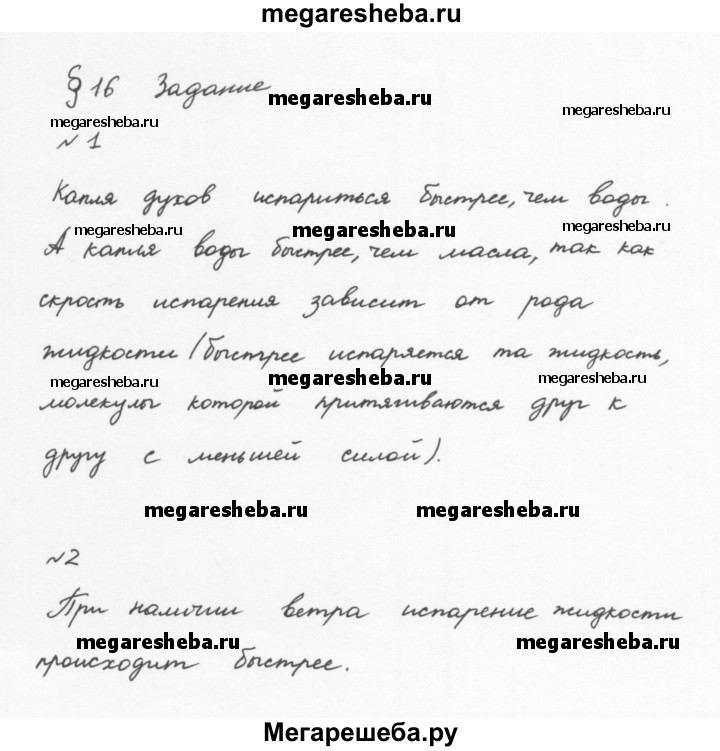 megaresheba.ru
§ 16 Задание
megaresheba.ru
megaresheba.ru
megaresheba.ru
№ 1
Капля духов испариться быстрее, чем воды.
megaresheba.ru
megaresheba.ru
megaresheba.ru
А капля воды быстрее, чем масла, так как
скрость испарения зависит от рода
жидкости (быстрее испаряется та жидкость,
megaresheba.ru
megaresheba.ru
megaresheba.ru
молекулы которой притягиваются друг к
другу с меньшей силой).
megaresheba.ru
megaresheba.ru
№2
При наличии ветра испарение жидкости
megaresheba.ru
megaresheba.ru
происходит быстрее.
Мегарешеба.ру